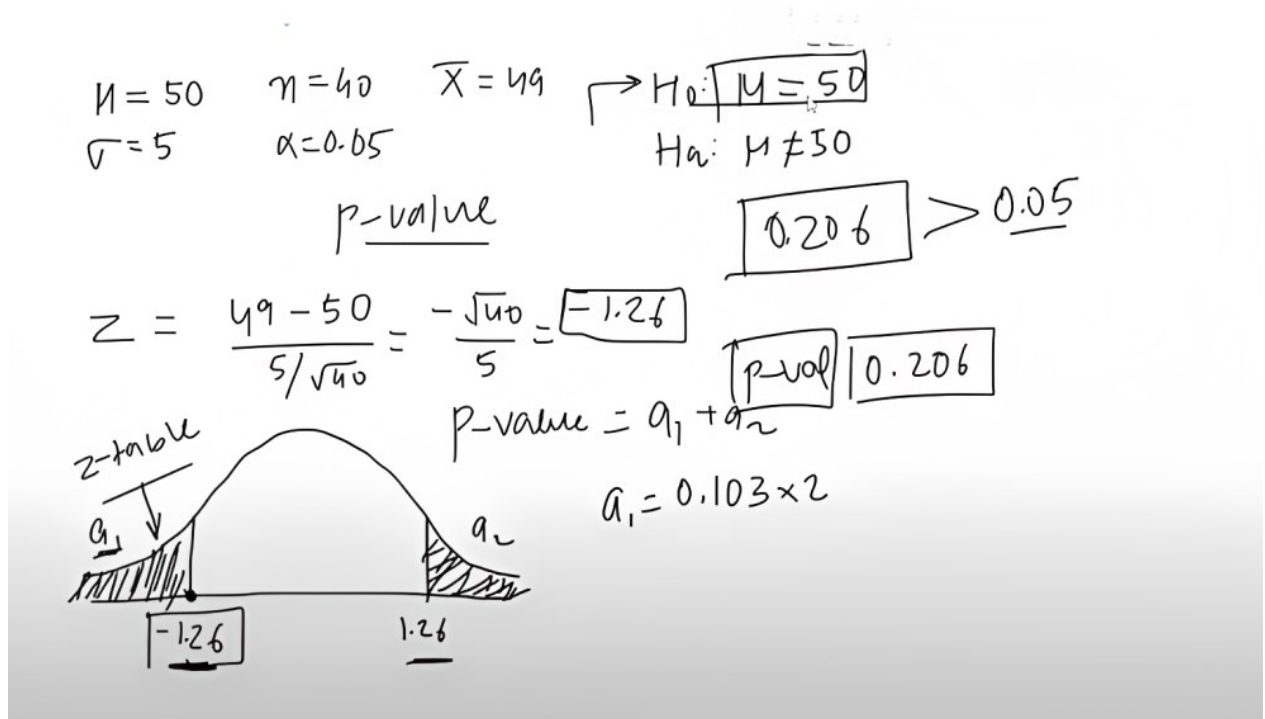 μ = 50 n = 40 x̄ = 49
σ = 5 α = 0.05
H₀: μ = 50
Ha: μ ≠ 50
p-value
0.206 > 0.05
Z = (49 - 50)/(5/√40) = -√40/5 = -1.26
p-val 0.206
p-value = a₁ + a₂
a₁ = 0.103 × 2
z-table
a₁ a₂
-1.26 1.26